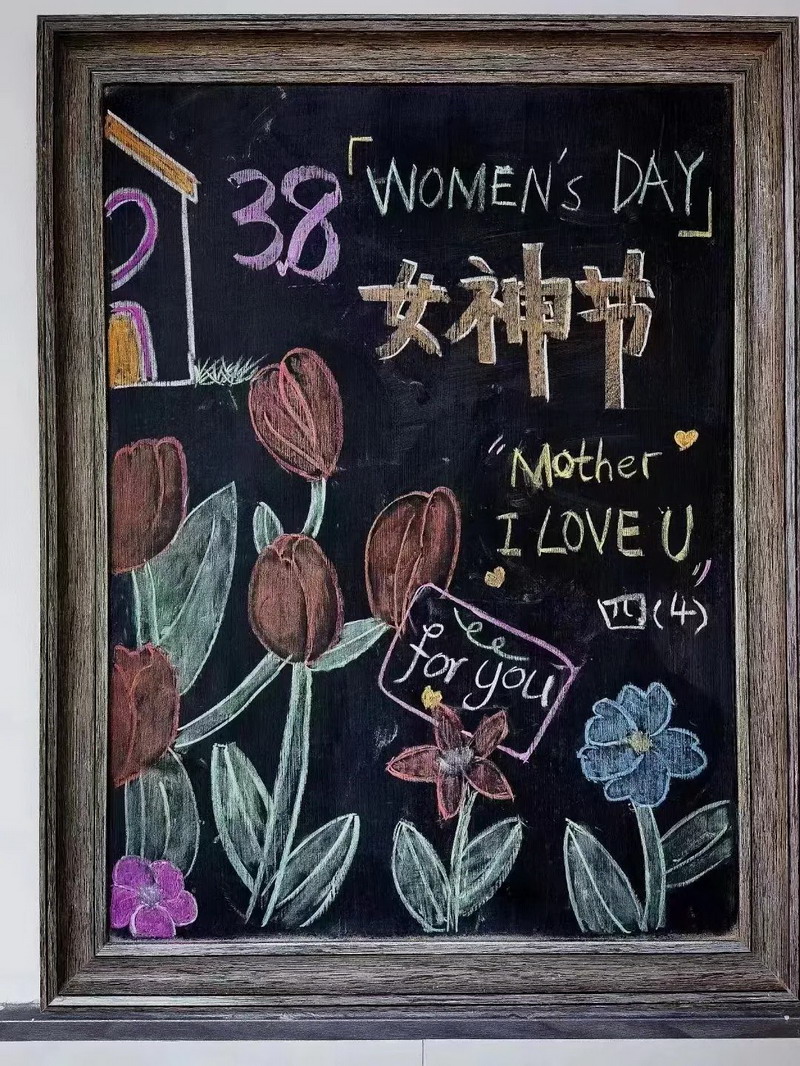 38「WOMEN's DAY」
女神节
"Mother
I LOVE U"
四(4)
for you